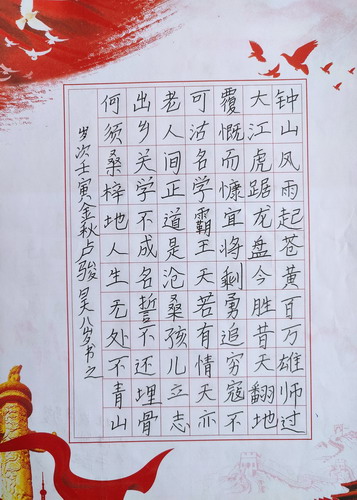 钟山风雨起苍黄百万雄师过
大江虎踞龙盘今胜昔天翻地
覆慨而慷宜将剩勇追穷寇不
可沽名学霸王天若有情天亦
老人间正道是沧桑孩儿立志
出乡关学不成名誓不还埋骨
何须桑梓地人生无处不青山
岁次壬寅金秋卢骏昊八岁书之